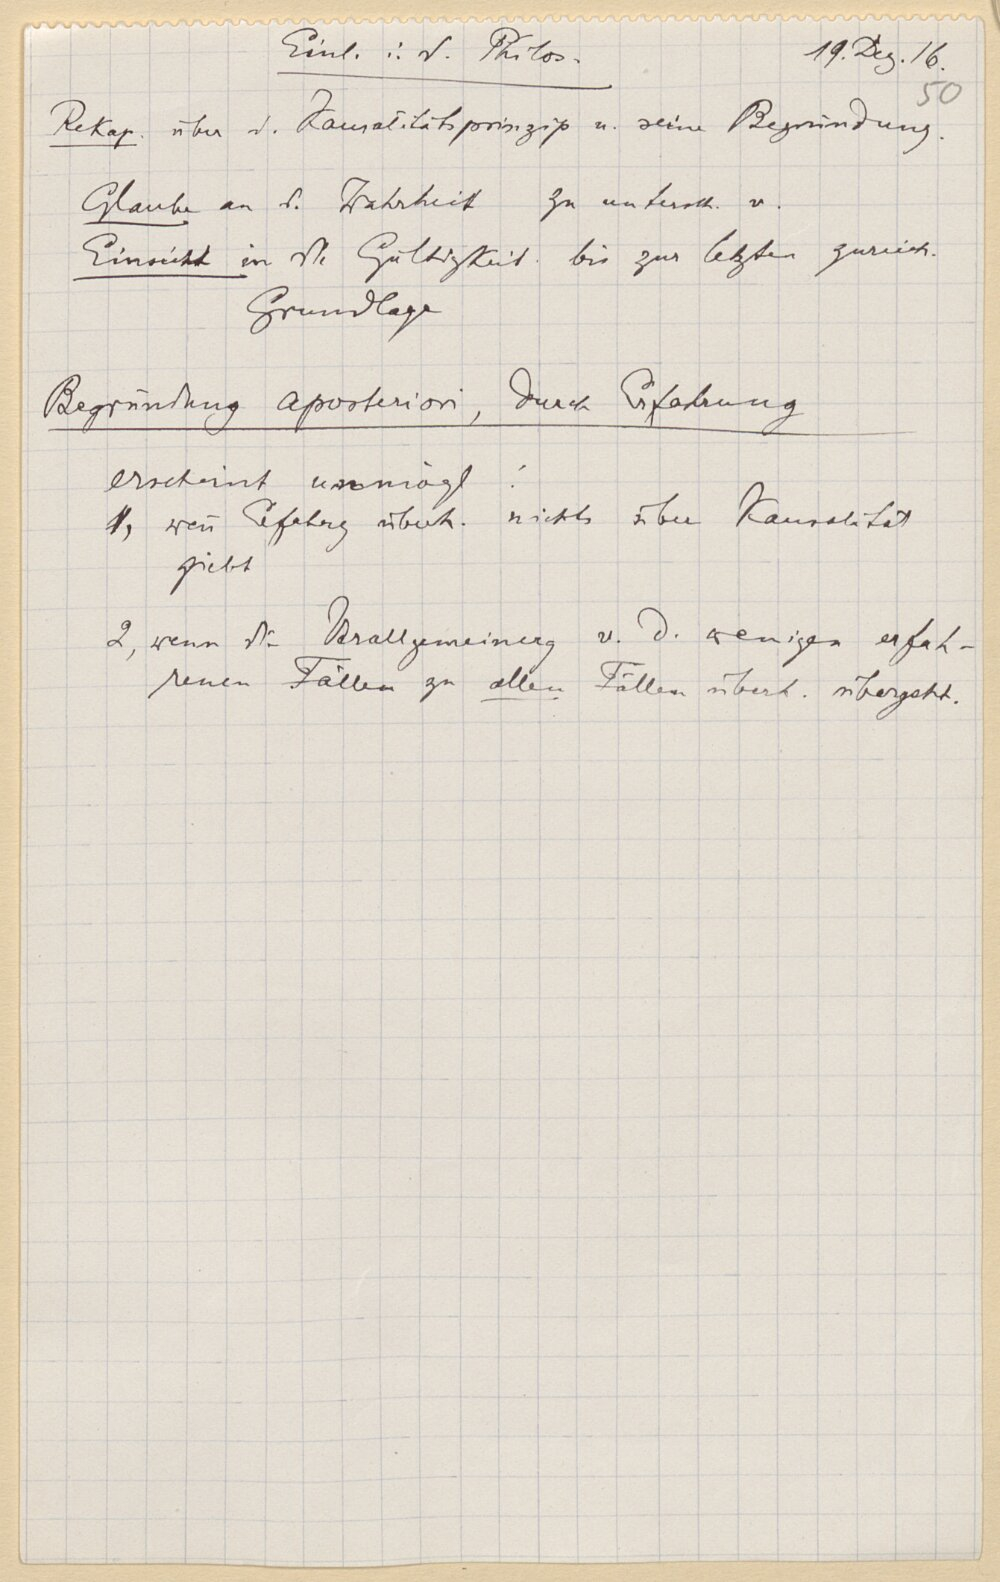 Einl. i. d. Philos. 19. Dez. 16.
50
Rekap. über d. Kausalitätsprinzip u. seine Begründung.
Glaube an d. Wahrheit zu untersch. v.
Einsicht in die Gültigkeit bis zur letzten zureich.
Grundlage
Begründung aposteriori, durch Erfahrung
erscheint unmögl:
1, wenn Erfahrg überh. nichts über Kausalität
giebt
2, wenn die Verallgemeinerg v. d. wenigen erfah-
renen Fällen zu allen Fällen überh. übergeht.